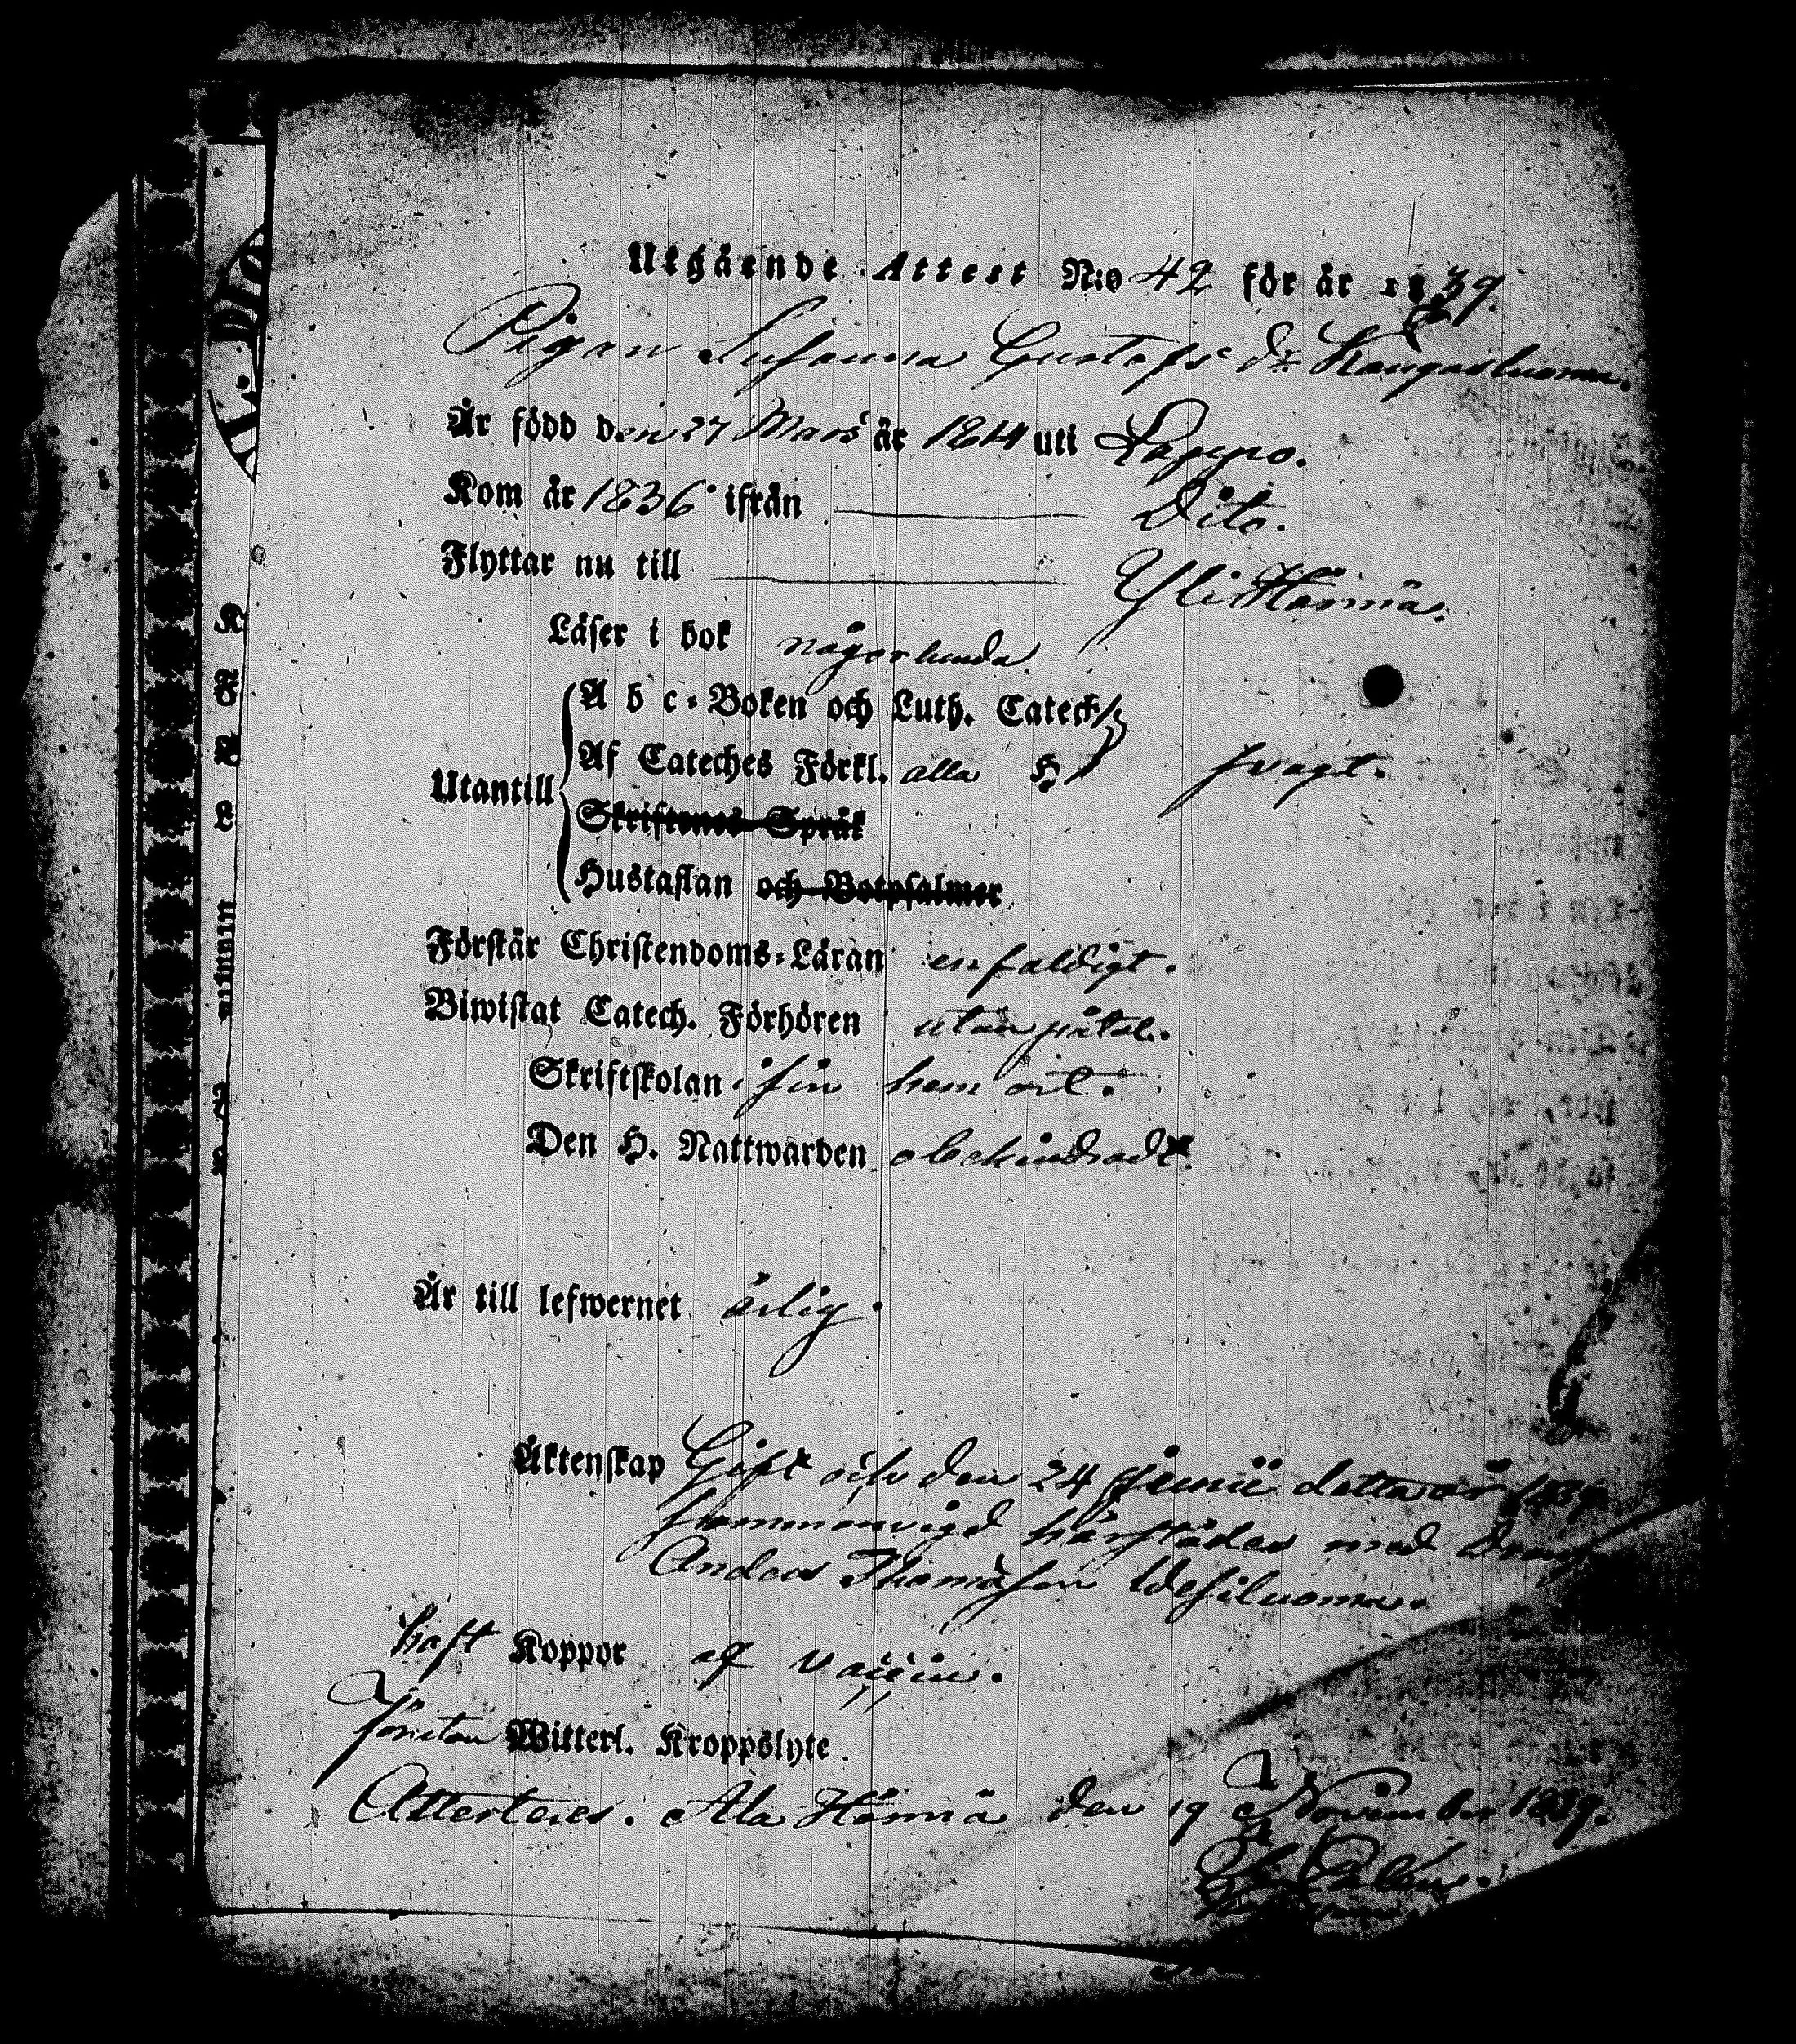 Utgående Attest N:o 42 för år 1839.
Pigan Susanna Gustafs dr Kangasluoma.
Är född den 27 Mars år 1814 uti Lappo.
Kom år 1836 ifrån Dito.
Flyttar nu till Ylihärmä.
Läser i bok någorlunda
A b c-Boken och Luth. Catech.
Utantill Af Cateches Förkl. alla H svagt.
Skriftenes Språk
Hustaflan och Botpsalmer
Förstår Christendoms-Läran enfaldigt.
Biwistat Catech. Förhören utan påtal.
Skriftskolan i sin hem ort.
Den H. Nattwarden obehindradt.
Är till lefwernet ärlig.
Äktenskap Gift och den 24 Junii detta år 1839
sammanvigd härstädes med Dreng
Anders Thomasson Wesiluoma.
haft Koppor af vaccin.
förutan Witterl. Kroppslyte.
Attesteras. Ala Härmä den 19 November 1839.